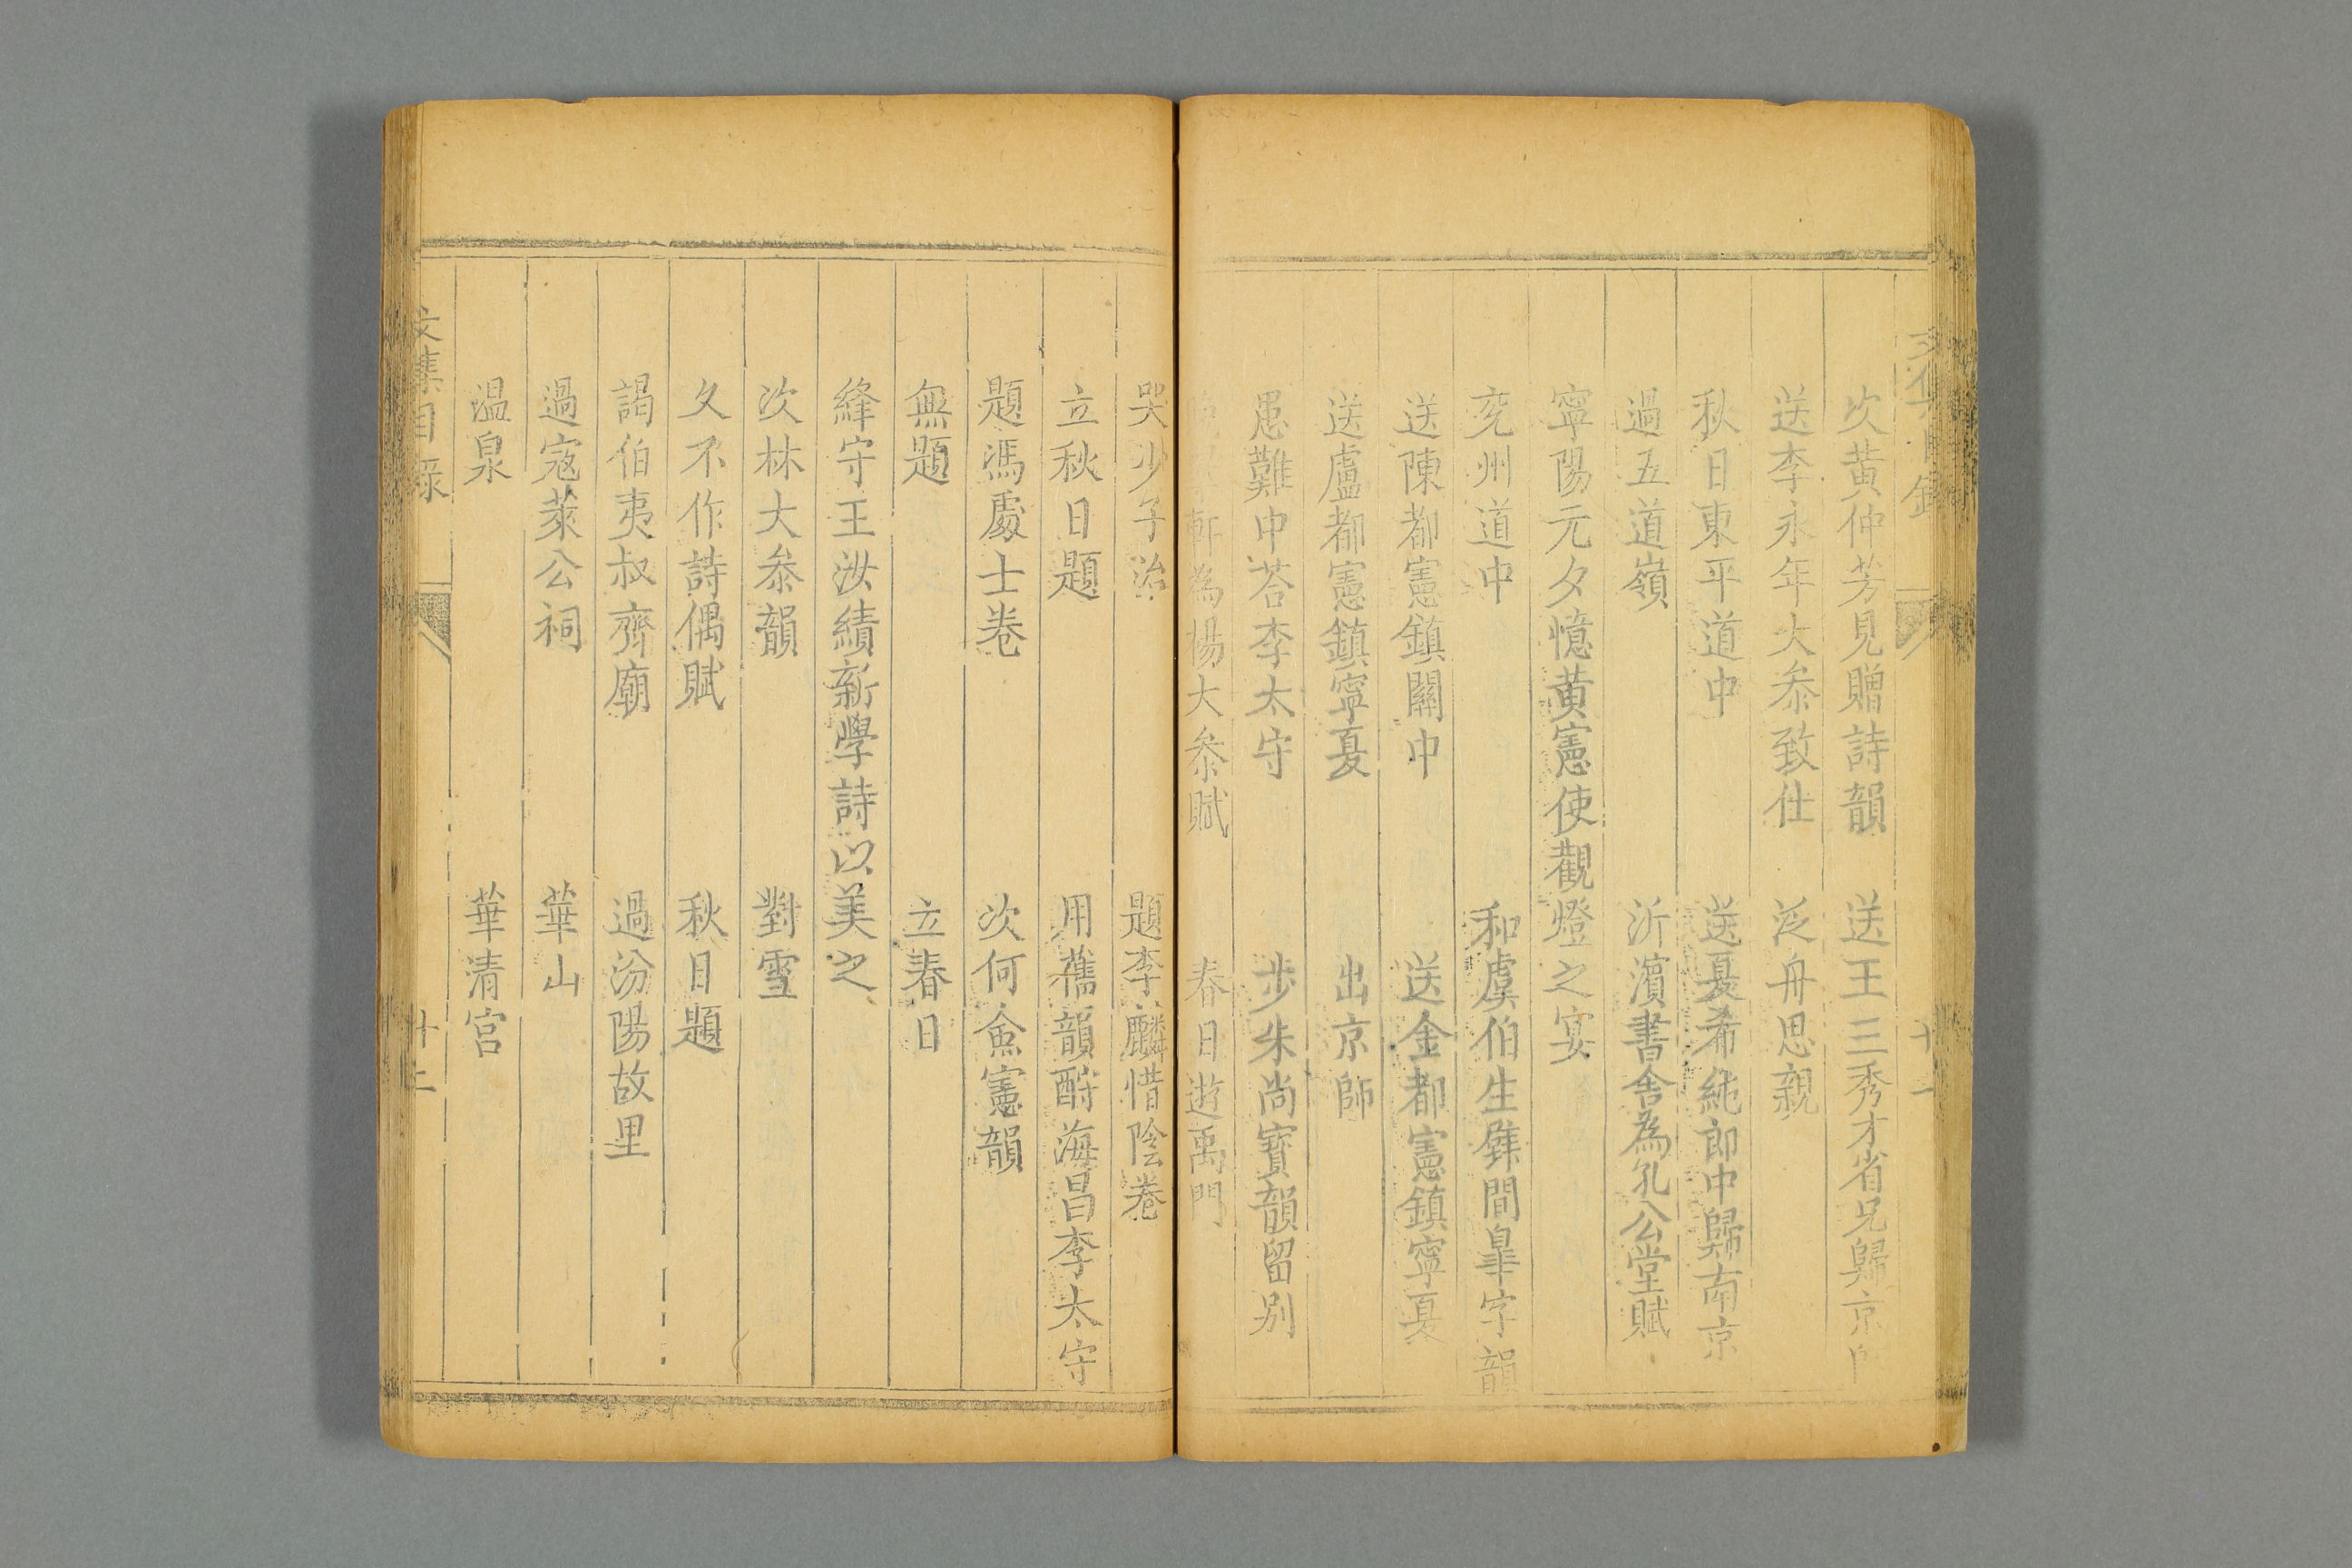 次黄仲芳見贈詩韻 送王三秀才省兄歸京
送李永年大叅致仕 泛舟思親
秋日東平道中 送夏希純郎中歸南京
過五道嶺 沂濵書舍為孔公堂賦
寧陽元夕憶黄憲使觀燈之宴
兖州道中 和虞伯生辥間皐字韻
送陳都憲鎮關中 送金都憲鎮寧夏
送盧都憲鎮寧夏 出京師
愚難中荅李太守 步朱尚寳韻留别
軒為楊大叅賦 春日遊禹門
哭少子治 題李麟惜陰卷
立秋日題 用舊韻酧海昌李太守
題馮處士卷 次何僉憲韻
無題 立春日
絳守王汝績新學詩以美之
次林大叅韻 對雪
久不作詩偶賦 秋日題
謁伯夷叔齊廟 過汾陽故里
過寇萊公祠 華山
温泉 華清宫
文集目録 廿二